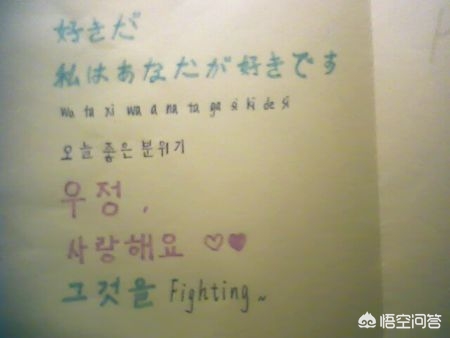 好きだ
私はあなたが好きです
Wa ta xi wa a na ta ga si ki de si
오늘 좋은 분위기
우정,
사랑해요 ♡♥
그것을 Fighting~
悟空问答